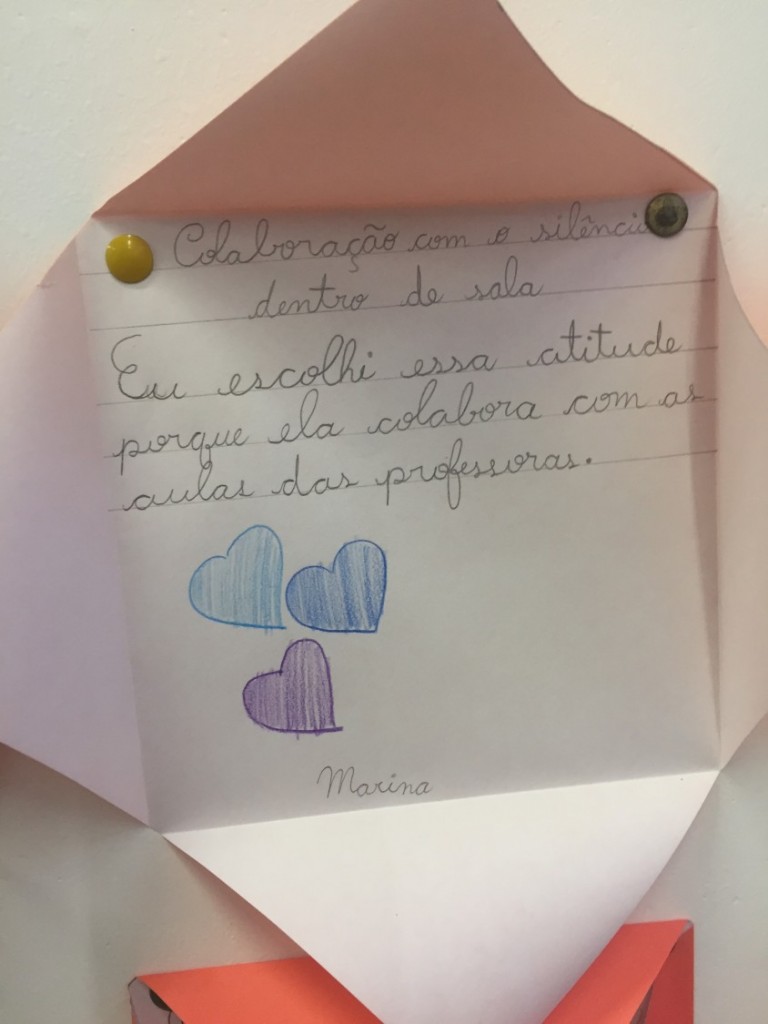 Colaboração com o silêncio
dentro de sala
Eu escolhi essa atitude
porque ela colabora com as
aulas das professoras.
Marina